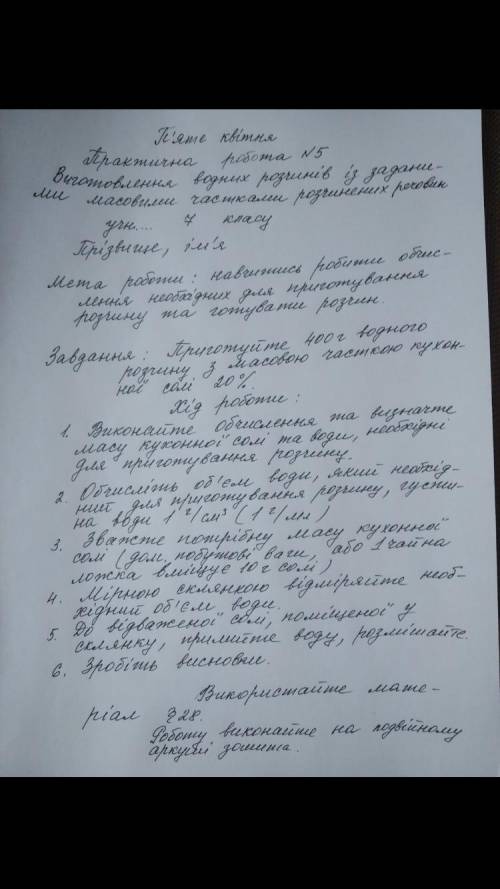 П'яте квітня
Практична робота №5
Виготовлення водних розчинів із задани-
ми масовими частками розчинених речовин
учн.... 7 класу
Прізвище, ім'я
Мета роботи: навчитись робити обчис-
лення необхідних для приготування
розчину та готувати розчин.
Завдання: Приготуйте 400г водного
розчину з масовою часткою кухон-
ної солі 20%.
Хід роботи:
1. Виконайте обчислення та визначте
масу кухонної солі та води, необхідні
для приготування розчину.
2. Обчисліть об'єм води, який необхід-
ний для приготування розчину, густи-
на води 1 г/см³ (1 г/мл)
3. Зважте потрібну масу кухонної
солі (дом. побутові ваги, або 1 чайна
ложка вміщує 10г солі)
4. Мірною склянкою відміряйте необ-
хідний об'єм води.
5. До відваженої солі, поміщеної у
склянку, прилийте воду, розмішайте.
6. Зробіть висновки.
Використайте мате-
ріал §28.
Роботу виконайте на подвійному
аркуші зошита.